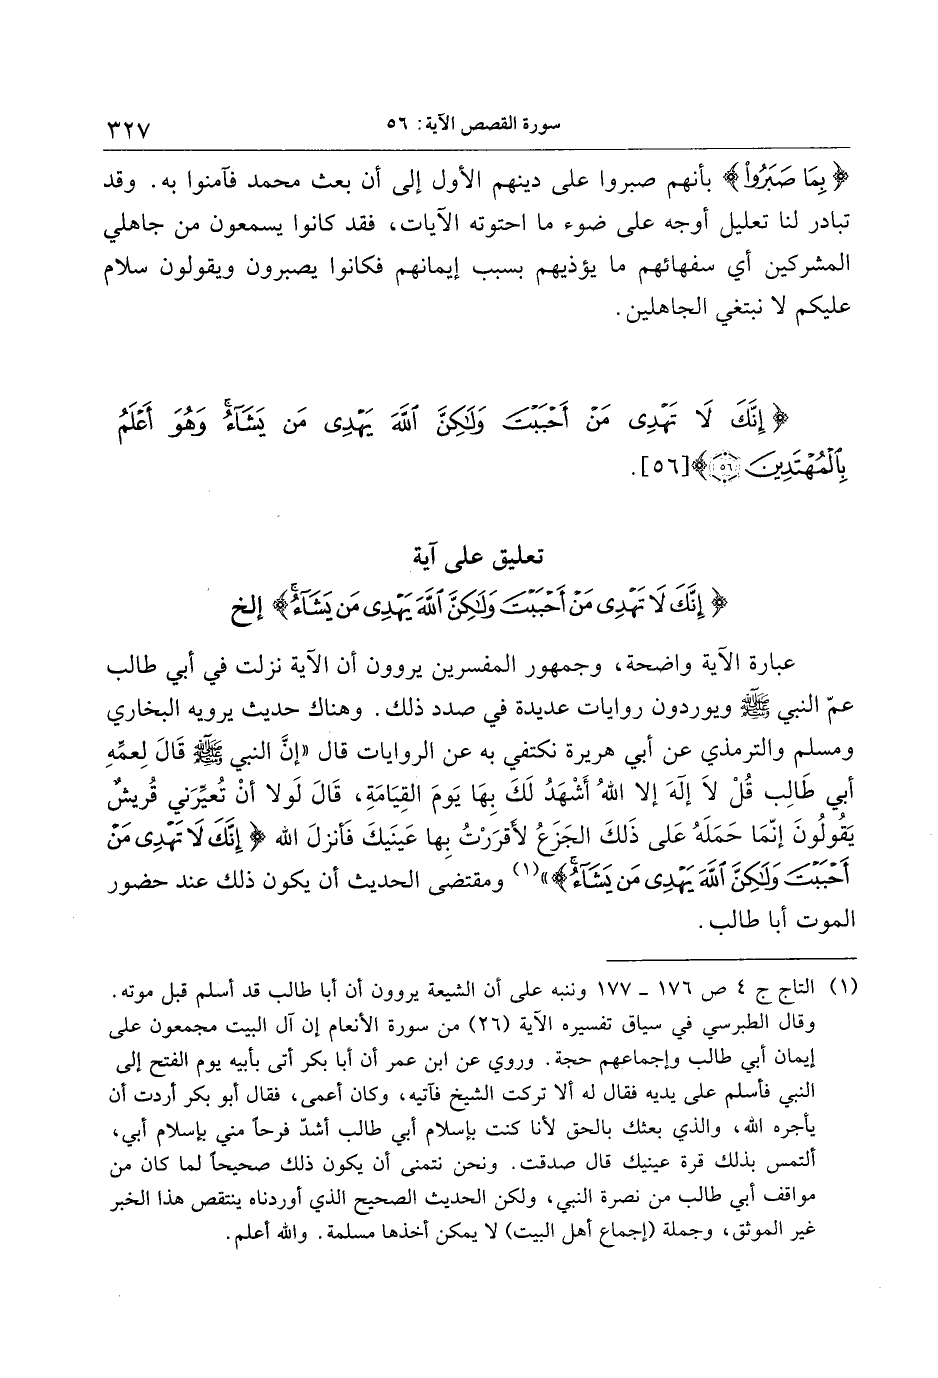 سورة القصص الآية: ٥٦ ٣٢٧
﴿ بِمَا صَبَرُوا۟ ﴾ بأنهم صبروا على دينهم الأول إلى أن بعث محمد فآمنوا به. وقد
تبادر لنا تعليل أوجه على ضوء ما احتوته الآيات، فقد كانوا يسمعون من جاهلي
المشركين أي سفهائهم ما يؤذيهم بسبب إيمانهم فكانوا يصبرون ويقولون سلام
عليكم لا نبتغي الجاهلين.
﴿ إِنَّكَ لَا تَهْدِى مَنْ أَحْبَبْتَ وَلَٰكِنَّ ٱللَّهَ يَهْدِى مَن يَشَآءُ ۚ وَهُوَ أَعْلَمُ
بِٱلْمُهْتَدِينَ ٥٦ ﴾ [٥٦].
تعليق على آية
﴿ إِنَّكَ لَا تَهْدِى مَنْ أَحْبَبْتَ وَلَٰكِنَّ ٱللَّهَ يَهْدِى مَن يَشَآءُ ۚ ﴾ إلخ
عبارة الآية واضحة، وجمهور المفسرين يروون أن الآية نزلت في أبي طالب
عمّ النبي ﷺ ويوردون روايات عديدة في صدد ذلك. وهناك حديث يرويه البخاري
ومسلم والترمذي عن أبي هريرة نكتفي به عن الروايات قال «إنَّ النبي ﷺ قَالَ لِعمِّهِ
أبي طَالِب قُلْ لاَ إلَهَ إلا اللهُ أَشْهَدُ لَكَ بِهَا يَومَ القِيَامَةِ، قَالَ لَولا أنْ تُعيِّرَني قُريشٌ
يَقُولُونَ إنّمَا حَمَلَهُ عَلى ذَلكَ الجَزَعُ لأقرَرْتُ بِها عَينَيكَ فَأنزلَ الله ﴿ إِنَّكَ لَا تَهْدِى مَنْ
أَحْبَبْتَ وَلَٰكِنَّ ٱللَّهَ يَهْدِى مَن يَشَآءُ ۚ ﴾»(١) ومقتضى الحديث أن يكون ذلك عند حضور
الموت أبا طالب.
(١) التاج ج ٤ ص ١٧٦ - ١٧٧ وننبه على أن الشيعة يروون أن أبا طالب قد أسلم قبل موته.
وقال الطبرسي في سياق تفسيره الآية (٢٦) من سورة الأنعام إن آل البيت مجمعون على
إيمان أبي طالب وإجماعهم حجة. وروي عن ابن عمر أن أبا بكر أتى بأبيه يوم الفتح إلى
النبي فأسلم على يديه فقال له ألا تركت الشيخ فآتيه، وكان أعمى، فقال أبو بكر أردت أن
يأجره الله، والذي بعثك بالحق لأنا كنت بإسلام أبي طالب أشدّ فرحاً مني بإسلام أبي،
ألتمس بذلك قرة عينيك قال صدقت. ونحن نتمنى أن يكون ذلك صحيحاً لما كان من
مواقف أبي طالب من نصرة النبي، ولكن الحديث الصحيح الذي أوردناه ينتقص هذا الخبر
غير الموثق، وجملة (إجماع أهل البيت) لا يمكن أخذها مسلمة. والله أعلم.